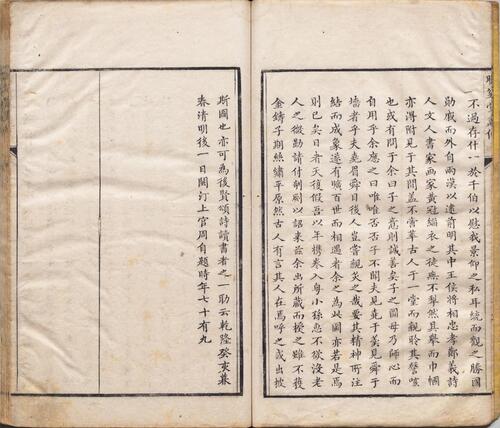 不過存什一於千伯以慰我景仰之私耳統而觀之勝國
勛戚而外自兩漢以逮前明其中王侯將相忠孝節義詩
人文人書家畫家黃冠緇衣之徒無不犁然具舉而巾幗
亦得附見于其間蓋不啻萃古人于一堂而親聆其謦咳
也或有問于余曰子之意則誠善矣子之圖毋乃師心而
自用乎余應之曰唯唯否否子不聞夫見堯于羹見舜于
墻者乎夫堯眉舜目後人豈嘗親炙之哉要其精神所注
結而成象遂有曠百世而相遇者余之為此圖亦若是焉
則已矣日者天復假吾以年携卷入粵小孫不欲沒老
人之微勤請付剞劂以詔來茲余出所藏而授之雖不獲
金鑄子期絲繡平原然古人有言其人在焉呼之或出披
斯圖也亦可為後賢頌詩讀書者之一助云乾隆癸亥暮
春清明後一日閩汀上官周自題時年七十有九